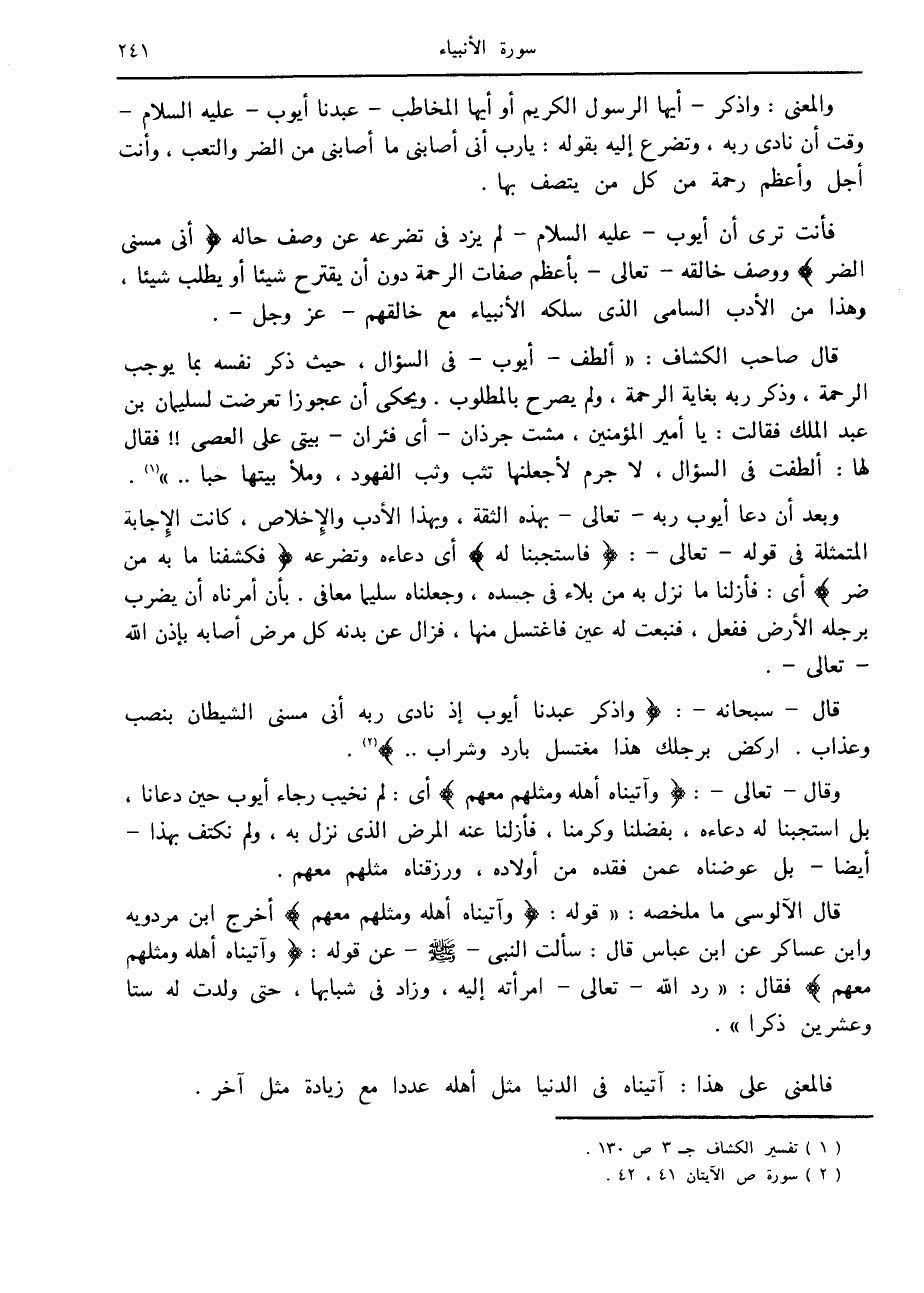 سورة الأنبياء ٢٤١
والمعنى : واذكر – أيها الرسول الكريم أو أيها المخاطب – عبدنا أيوب – عليه السلام –
وقت أن نادى ربه ، وتضرع إليه بقوله : يارب أنى أصابنى ما أصابنى من الضر والتعب ، وأنت
أجل وأعظم رحمة من كل من يتصف بها .
فأنت ترى أن أيوب – عليه السلام – لم يزد فى تضرعه عن وصف حاله ﴿ أنى مسنى
الضر ﴾ ووصف خالقه – تعالى – بأعظم صفات الرحمة دون أن يقترح شيئا أو يطلب شيئا ،
وهذا من الأدب السامى الذى سلكه الأنبياء مع خالقهم – عز وجل – .
قال صاحب الكشاف : « ألطف – أيوب – فى السؤال ، حيث ذكر نفسه بما يوجب
الرحمة ، وذكر ربه بغاية الرحمة ، ولم يصرح بالمطلوب . ويحكى أن عجوزا تعرضت لسليمان بن
عبد الملك فقالت : يا أمير المؤمنين ، مشت جرذان – أى فئران – بيتى على العصى !! فقال
لها : ألطفت فى السؤال ، لا جرم لأجعلنها تثب وثب الفهود ، وملأ بيتها حبا .. »(١) .
وبعد أن دعا أيوب ربه – تعالى – بهذه الثقة ، وبهذا الأدب والإخلاص ، كانت الإجابة
المتمثلة فى قوله – تعالى – : ﴿ فاستجبنا له ﴾ أى دعاءه وتضرعه ﴿ فكشفنا ما به من
ضر ﴾ أى : فأزلنا ما نزل به من بلاء فى جسده ، وجعلناه سليما معافى . بأن أمرناه أن يضرب
برجله الأرض ففعل ، فنبعت له عين فاغتسل منها ، فزال عن بدنه كل مرض أصابه بإذن الله
– تعالى – .
قال – سبحانه – : ﴿ واذكر عبدنا أيوب إذ نادى ربه أنى مسنى الشيطان بنصب
وعذاب . اركض برجلك هذا مغتسل بارد وشراب .. ﴾(٢) .
وقال – تعالى – : ﴿ وآتيناه أهله ومثلهم معهم ﴾ أى : لم نخيب رجاء أيوب حين دعانا ،
بل استجبنا له دعاءه ، بفضلنا وكرمنا ، فأزلنا عنه المرض الذى نزل به ، ولم نكتف بهذا –
أيضا – بل عوضناه عمن فقده من أولاده ، ورزقناه مثلهم معهم .
قال الآلوسى ما ملخصه : « قوله : ﴿ وآتيناه أهله ومثلهم معهم ﴾ أخرج ابن مردويه
وابن عساكر عن ابن عباس قال : سألت النبى – ﷺ – عن قوله : ﴿ وآتيناه أهله ومثلهم
معهم ﴾ فقال : « رد الله – تعالى – امرأته إليه ، وزاد فى شبابها ، حتى ولدت له ستا
وعشرين ذكرا » .
فالمعنى على هذا : آتيناه فى الدنيا مثل أهله عددا مع زيادة مثل آخر .
( ١ ) تفسير الكشاف جـ ٣ ص ١٣٠ .
( ٢ ) سورة ص الآيتان ٤١ ، ٤٢ .